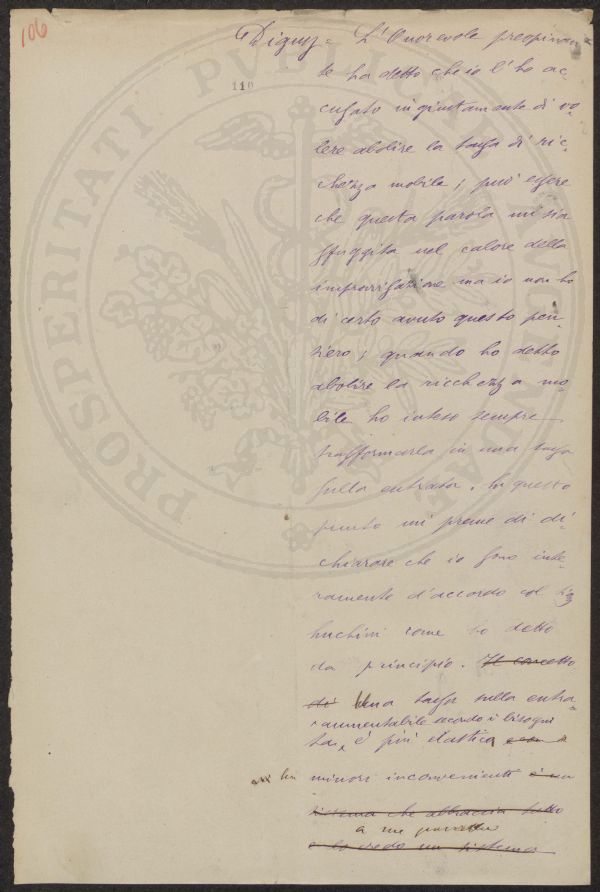 106
110
Digny = L'Onorevole preopinan
te ha detto che io l'ho ac-
cusato ingiustamente di vo-
lere abolire la tassa di ric-
chezza mobile; può essere
che questa parola mi sia
sfuggita nel calore della
improvvisazione ma io non ho
di certo avuto questo pen-
siero; quando ho detto
abolire la ricchezza mo-
bile ho inteso sempre
trasformarla in una tassa
sulla entrata. In questo
punto mi preme di di-
chiarare che io sono inte-
ramente d'accordo col
come ho detto
da principio. Il concetto
di Una tassa sulla entra-
aumentabile secondo i bisogni
ta, è più elastica
ha minori inconvenienti è un
sistema che abbraccia tutto
a me
e lo credo un sistema
PROSPERITATI PVBLICAE AVGENDAE